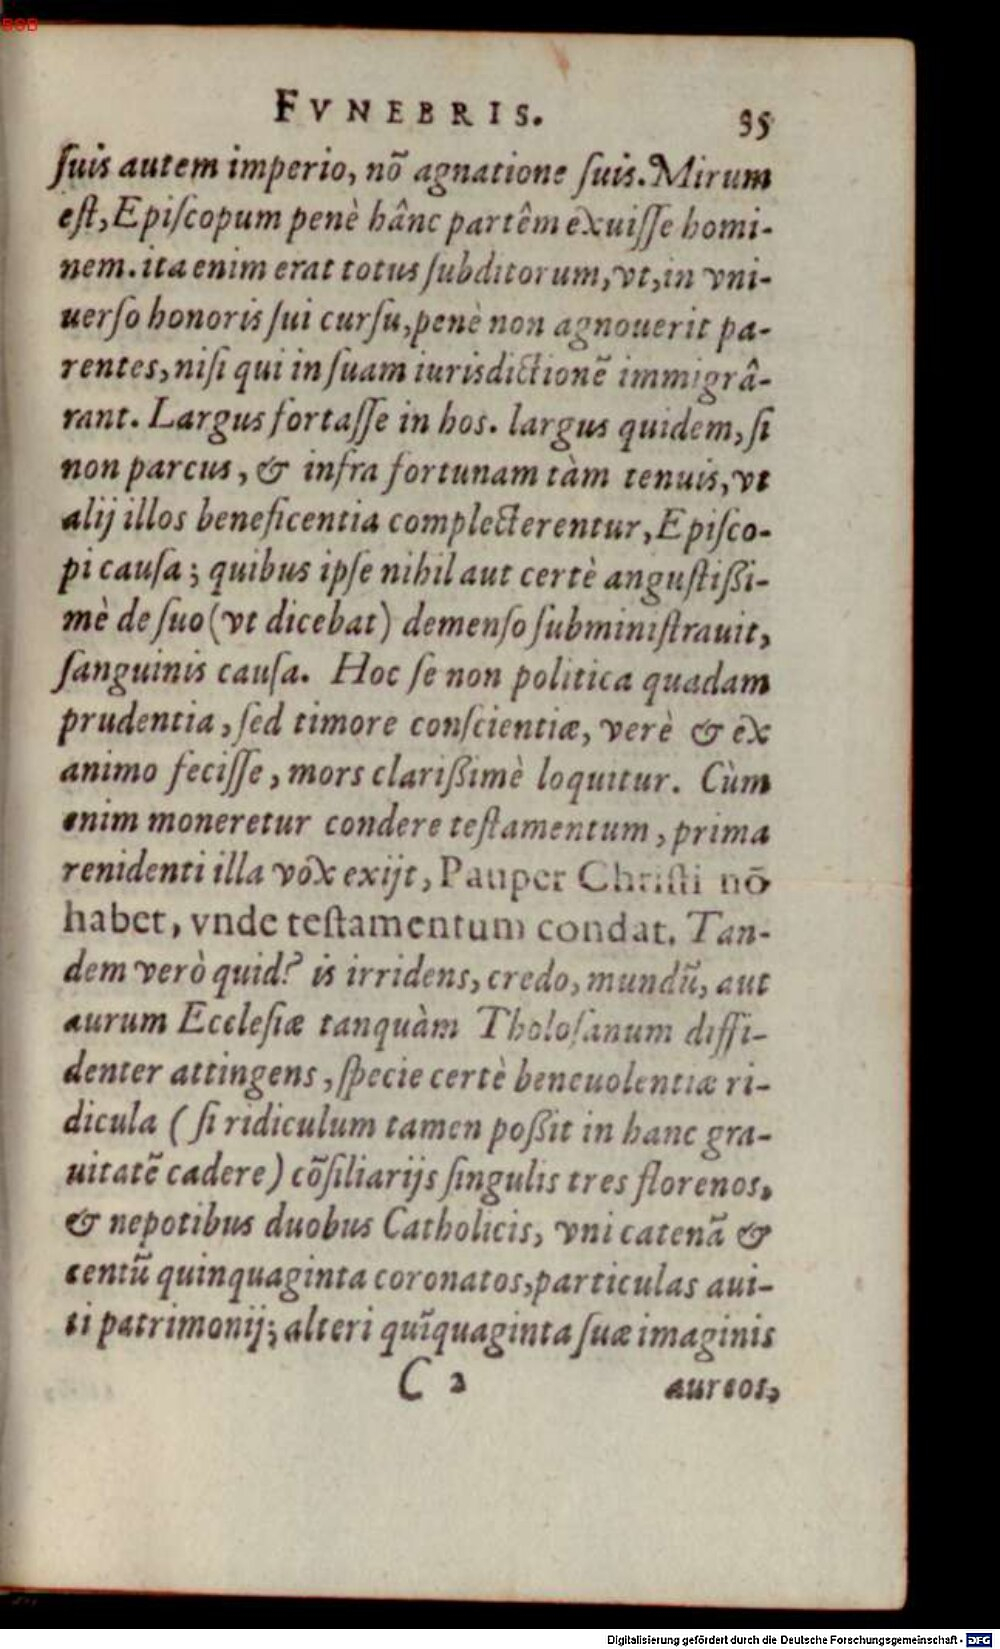 BSB
FVNEBRIS. 35
ſuis autem imperio, nõ agnatione ſuis. Mirum
eſt, Epiſcopum penè hânc partêm exuiſſe homi-
nem. ita enim erat totus ſubditorum, vt, in vni-
uerſo honoris ſui curſu, penè non agnouerit pa-
rentes, niſi qui in ſuam iurisdictionẽ immigrâ-
rant. Largus fortaſſe in hos. largus quidem, ſi
non parcus, & infra fortunam tàm tenuis, vt
alij illos beneficentia complecterentur, Epiſco-
pi cauſa; quibus ipſe nihil aut certè anguſtißi-
mè de ſuo (vt dicebat) demenſo ſubminiſtrauit,
ſanguinis cauſa. Hoc ſe non politica quadam
prudentia, ſed timore conſcientiæ, verè & ex
animo feciſſe, mors clarißimè loquitur. Cùm
enim moneretur condere teſtamentum, prima
renidenti illa vox exijt, Pauper Chriſti nõ
habet, vnde teſtamentum condat. Tan-
dem verò quid? is irridens, credo, mundũ, aut
aurum Eccleſiæ tanquàm Tholoſanum diffi-
denter attingens, ſpecie certè beneuolentiæ ri-
dicula (ſi ridiculum tamen poßit in hanc gra-
uitatẽ cadere) cõſiliarijs ſingulis tres florenos,
& nepotibus duobus Catholicis, vni catenã &
centũ quinquaginta coronatos, particulas aui-
ti patrimonij; alteri quĩquaginta ſuæ imaginis
C 2 aureos,
Digitalisierung gefördert durch die Deutsche Forschungsgemeinschaft - DFG